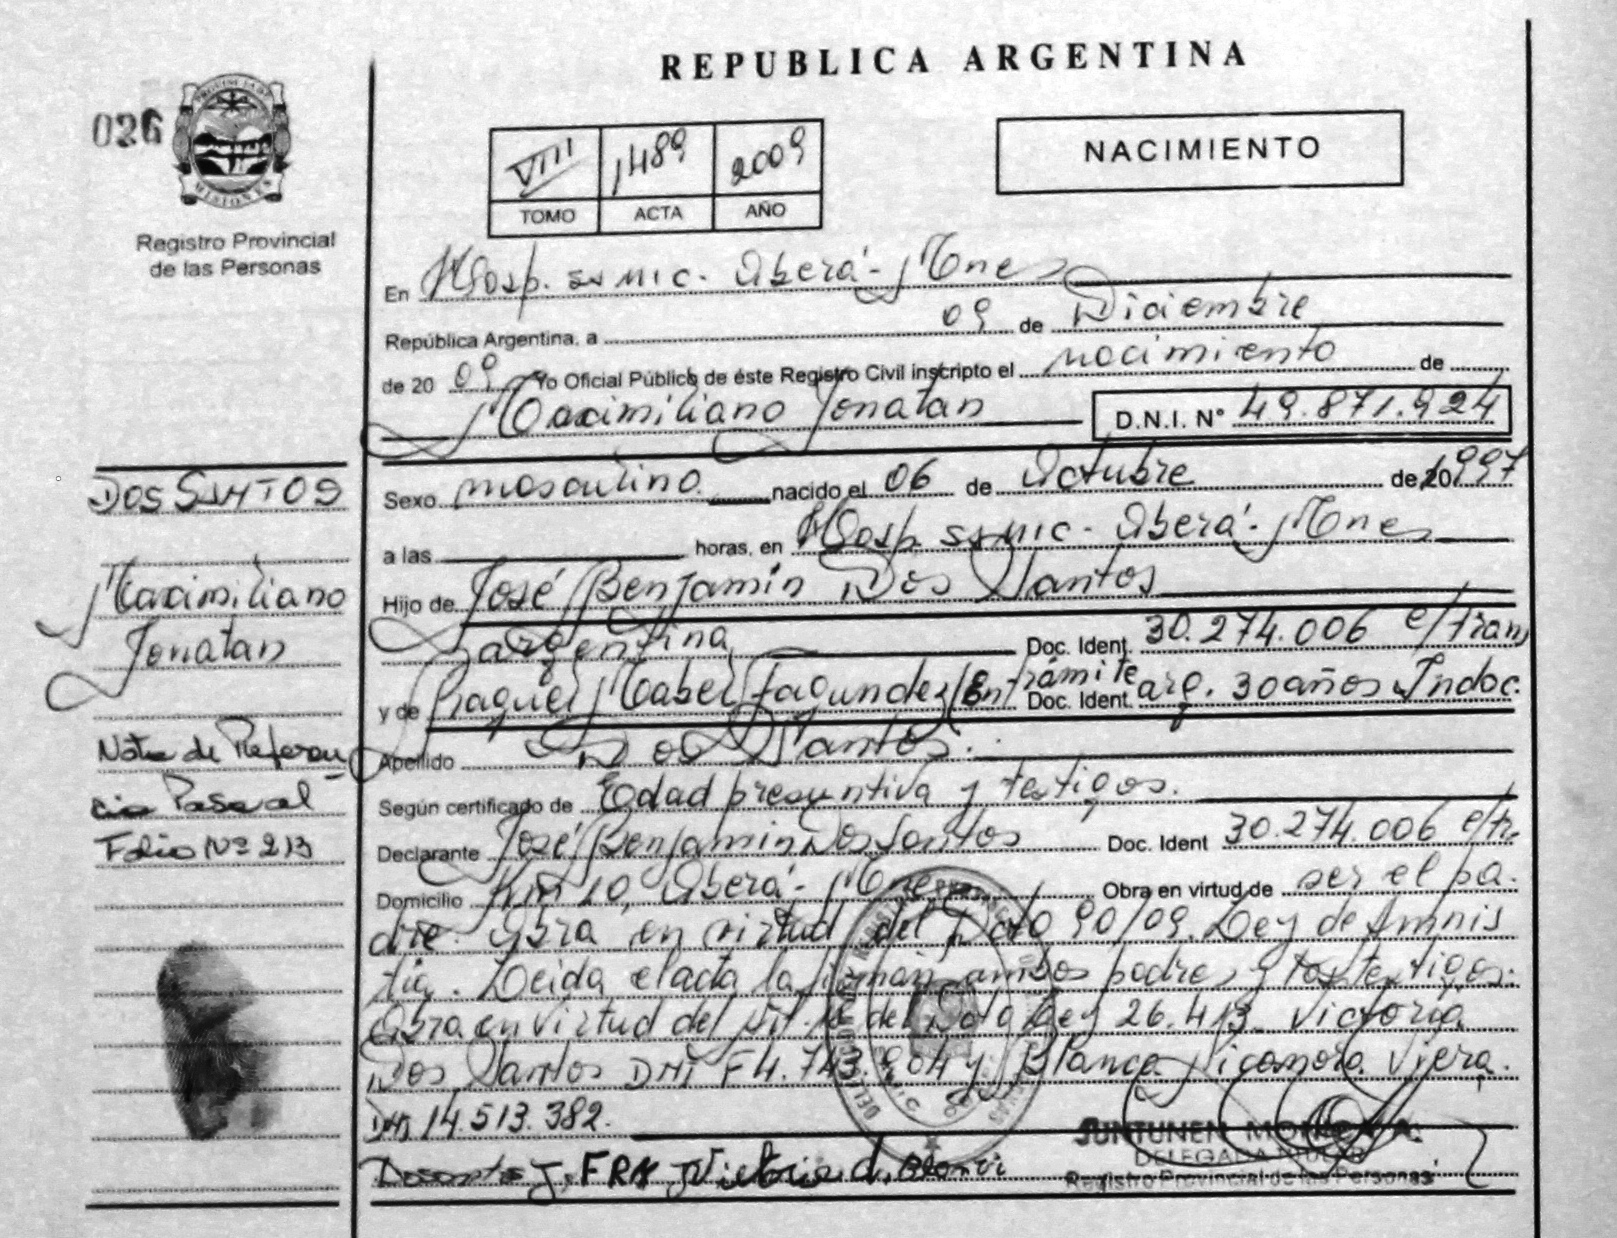 REPUBLICA ARGENTINA
026
PROVINCIA DE MISIONES
Registro Provincial
de las Personas
VIII 1489 2009
TOMO ACTA AÑO
NACIMIENTO
En Hosp. ss mic. Oberá - Mnes
República Argentina, a 09 de Diciembre
de 20 09 Yo Oficial Público de éste Registro Civil inscripto el nacimiento de
Maximiliano Jonatan D.N.I. N° 49.871.924
Sexo masculino nacido el 06 de Octubre de 20 1997
a las horas, en Hosp. ss mic - Oberá - Mnes
Hijo de José Benjamin Dos Santos
argentina Doc. Ident. 30.274.006 e/tram
y de Raquel Mabel Fagundez/En trámite Doc. Ident. arg. 30 años Indoc.
Apellido Dos Santos.
Según certificado de Edad presuntiva y testigos.
Declarante José Benjamin Dos Santos Doc. Ident 30.274.006 e/tr
Domicilio Km 10, Oberá - Mnes Obra en virtud de ser el pa-
dre. Obra en virtud del Dcto 90/09. Ley de Amnis
tía. Leida el acta la firman ambos padres y los testigos.
Obra en virtud del de la Ley 26.413. Victoria
Dos Santos DNI F4.743.904 y Blanca Nicanora Viera.
DNI 14.513.382.
Dosantos J, FRM Victoria d, Blanca
JUNTUNEN
DELEGADA TITULAR
Registro Provincial de las Personas
DOS SANTOS
Maximiliano
Jonatan
Nota de Referen
cia
Folio Nº 213